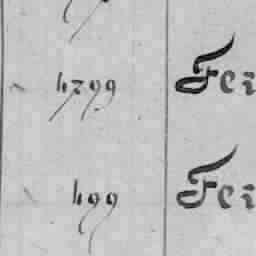 4799 Fei
499 Fei